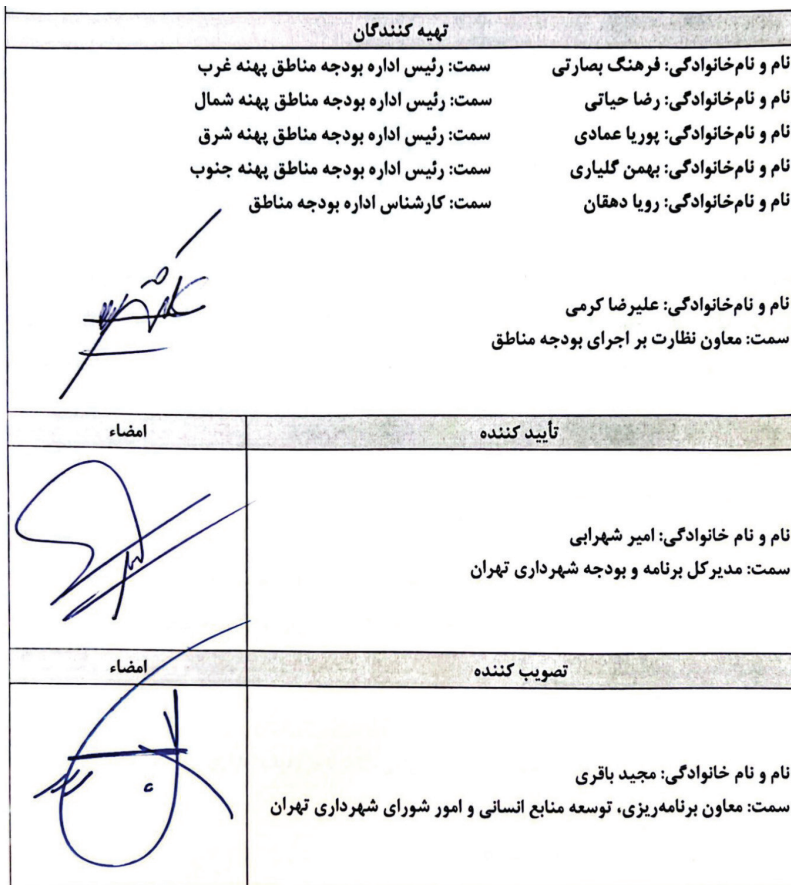 تهیه کنندگان
نام و نام‌خانوادگی: فرهنگ بصارتی سمت: رئیس اداره بودجه مناطق پهنه غرب
نام و نام‌خانوادگی: رضا حیاتی سمت: رئیس اداره بودجه مناطق پهنه شمال
نام و نام‌خانوادگی: پوریا عمادی سمت: رئیس اداره بودجه مناطق پهنه شرق
نام و نام‌خانوادگی: بهمن گلیاری سمت: رئیس اداره بودجه مناطق پهنه جنوب
نام و نام‌خانوادگی: رویا دهقان سمت: کارشناس اداره بودجه مناطق
نام و نام‌خانوادگی: علیرضا کرمی
سمت: معاون نظارت بر اجرای بودجه مناطق
تأیید کننده امضاء
نام و نام خانوادگی: امیر شهرابی
سمت: مدیرکل برنامه و بودجه شهرداری تهران
تصویب کننده امضاء
نام و نام خانوادگی: مجید باقری
سمت: معاون برنامه‌ریزی، توسعه منابع انسانی و امور شورای شهرداری تهران